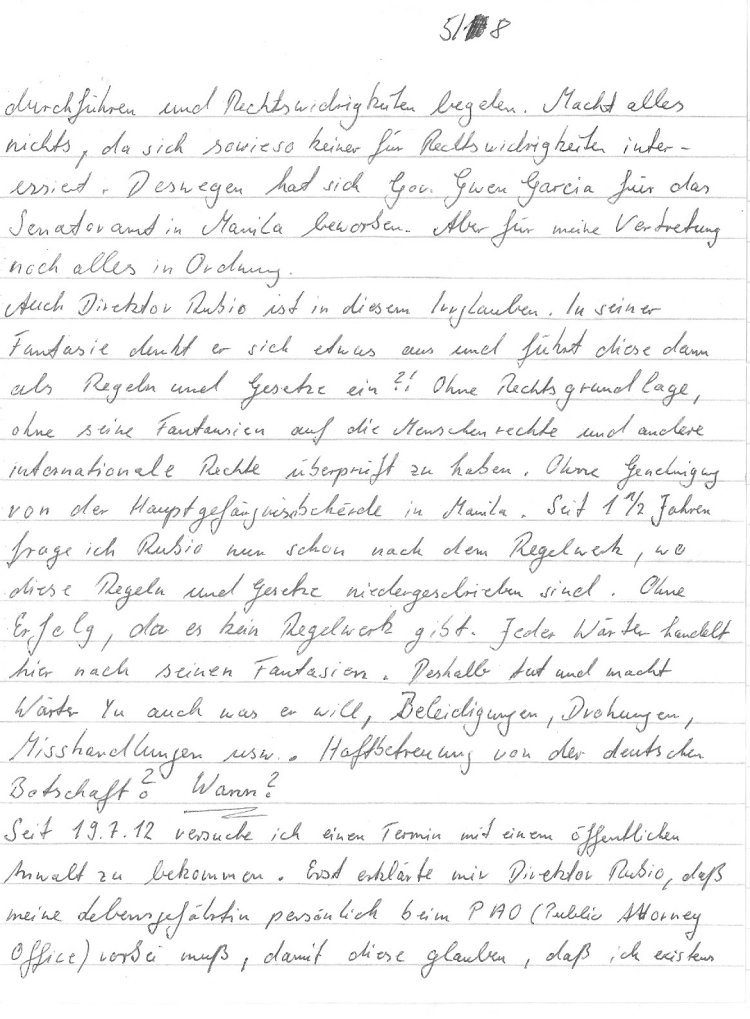 5/8
durchführen und Rechtswidrigkeiten begehen. Macht alles
nichts, da sich sowieso keiner für Rechtswidrigkeiten inter-
essiert. Deswegen hat sich Gov. Gwen Garcia für das
Senatoramt in Manila beworben. Aber für meine Vertretung
noch alles in Ordnung.
Auch Direktor Rubio ist in diesem Irrglauben. In seiner
Fantasie denkt er sich etwas aus und führt diese dann
als Regeln und Gesetze ein?! Ohne Rechtsgrundlage,
ohne seine Fantansien auf die Menschenrechte und andere
internationale Rechte überprüft zu haben. Ohne Genehmigung
von der Hauptgefängnisbehörde in Manila. Seit 1 1/2 Jahren
frage ich Rubio nun schon nach dem Regelwerk, wo
diese Regeln und Gesetze niedergeschrieben sind. Ohne
Erfolg, da es kein Regelwerk gibt. Jeder Wärter handelt
hier nach seinen Fantasien. Deshalb tut und macht
Wärter Yu auch was er will, Beleidigungen, Drohungen,
Misshandlungen usw.. Haftbetreuung von der deutschen
Botschaft? Wann?
Seit 19.7.12 versuche ich einen Termin mit einem öffentlichen
Anwalt zu bekommen. Erst erklärte mir Direktor Rubio, daß
meine Lebensgefährtin persönlich beim PAO (Public Attorney
Office) vorbei muß, damit diese glauben, daß ich existens